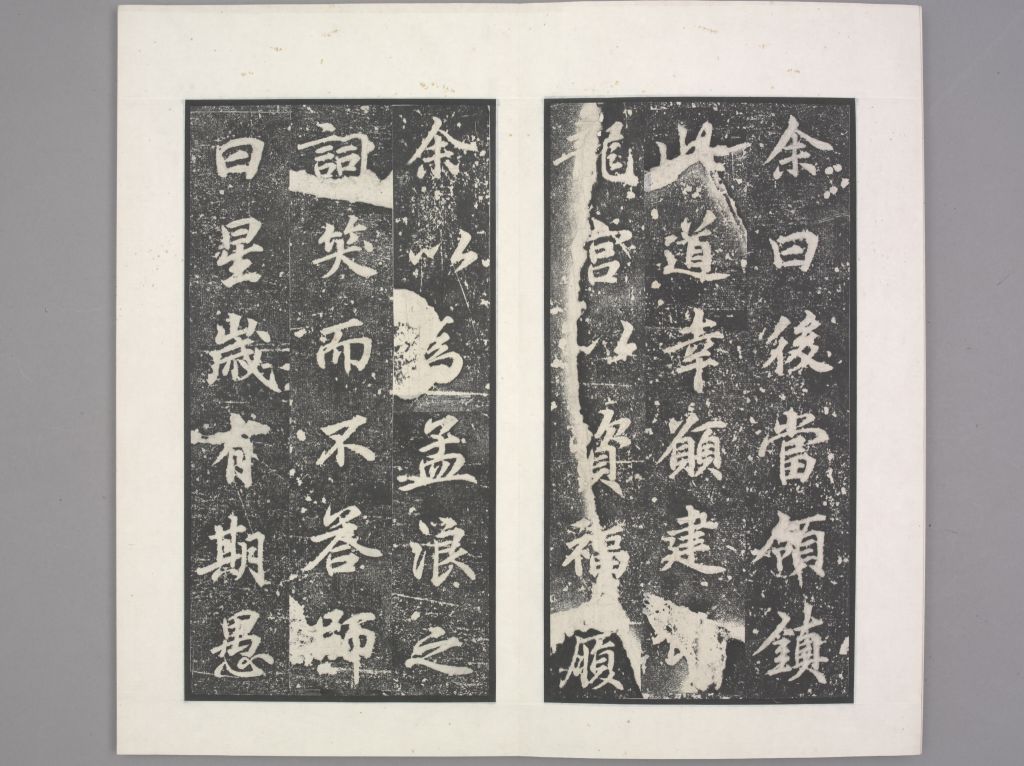 余曰後當領鎮
此道幸願建
龍宮以資福顧
余以為孟浪之
詞笑而不荅師
曰星歲有期愚